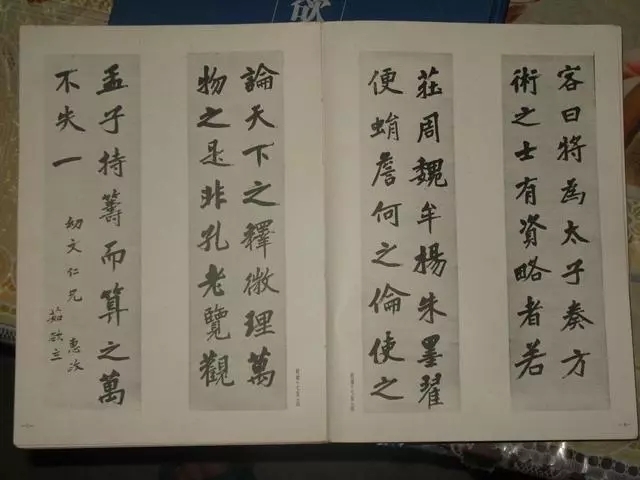 客曰將為太子奏方
術之士有資略者若
莊周魏牟楊朱墨翟
便蜎詹何之倫使之
論天下之釋微理萬
物之是非孔老覽觀
孟子持籌而算之萬
不失一
幼文仁兄 惠
茹欲立
欲